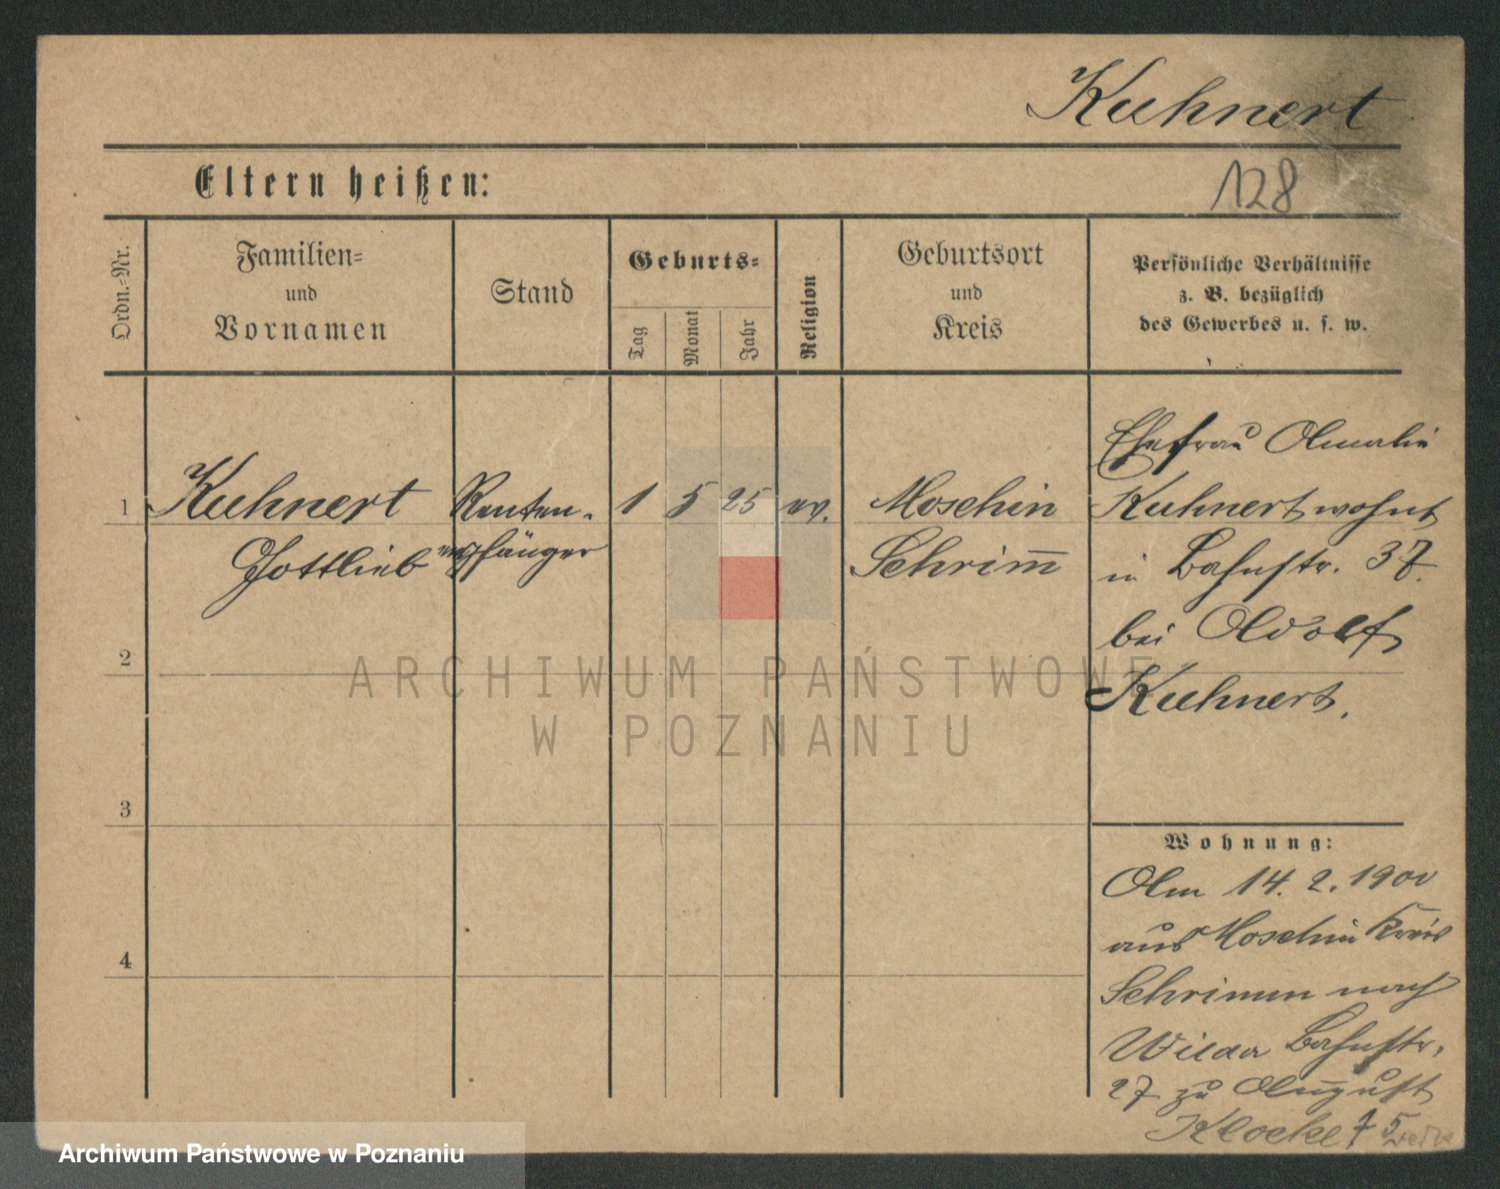 Kuhnert
Eltern heißen:
128
Ordn.-Nr.
Familien-
und
Vornamen
Stand
Geburts-
Tag
Monat
Jahr
Religion
Geburtsort
und
Kreis
Persönliche Verhältnisse
z. B. bezüglich
des Gewerbes u. s. w.
1
Kuhnert
Gottlieb
Renten-
empfänger
1 5 25
ev.
Moschin
Schrim̅
Ehefrau Amalie
Kuhnert wohnt
in Bahnstr. 37.
bei Adolf
Kuhnert.
2
3
4
Wohnung:
Am 14. 2. 1900
aus Moschin Kreis
Schrimm nach
Wilda Bahnstr.
27 zu August
Klocke
ARCHIWUM PAŃSTWOWE
W POZNANIU
Archiwum Państwowe w Poznaniu